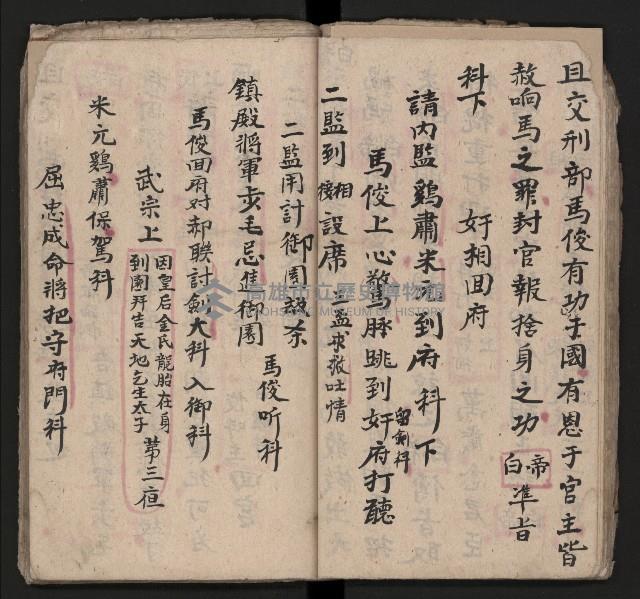 且交刑部馬俊有功于國有恩于官主皆
赦响馬之罪封官報捨身之功帝白準旨
科下　奸相回府
請內監鷄肅米元到府科下
馬俊上心驚脉跳到奸府打聽留劍科
二監到相接設席吐情
二監用計御園茶
鎮殿將軍步毛忌進御園　馬俊听科
馬俊回府对郝聯討劍大科入御科
武宗上因皇后金氏龍胎在身到園拜告天地乞生太子第三夜
米元鷄肅保駕科
屈忠成命將把守府門科
高雄市立歷史博物館
KAOHSIUNG MUSEUM OF HISTORY